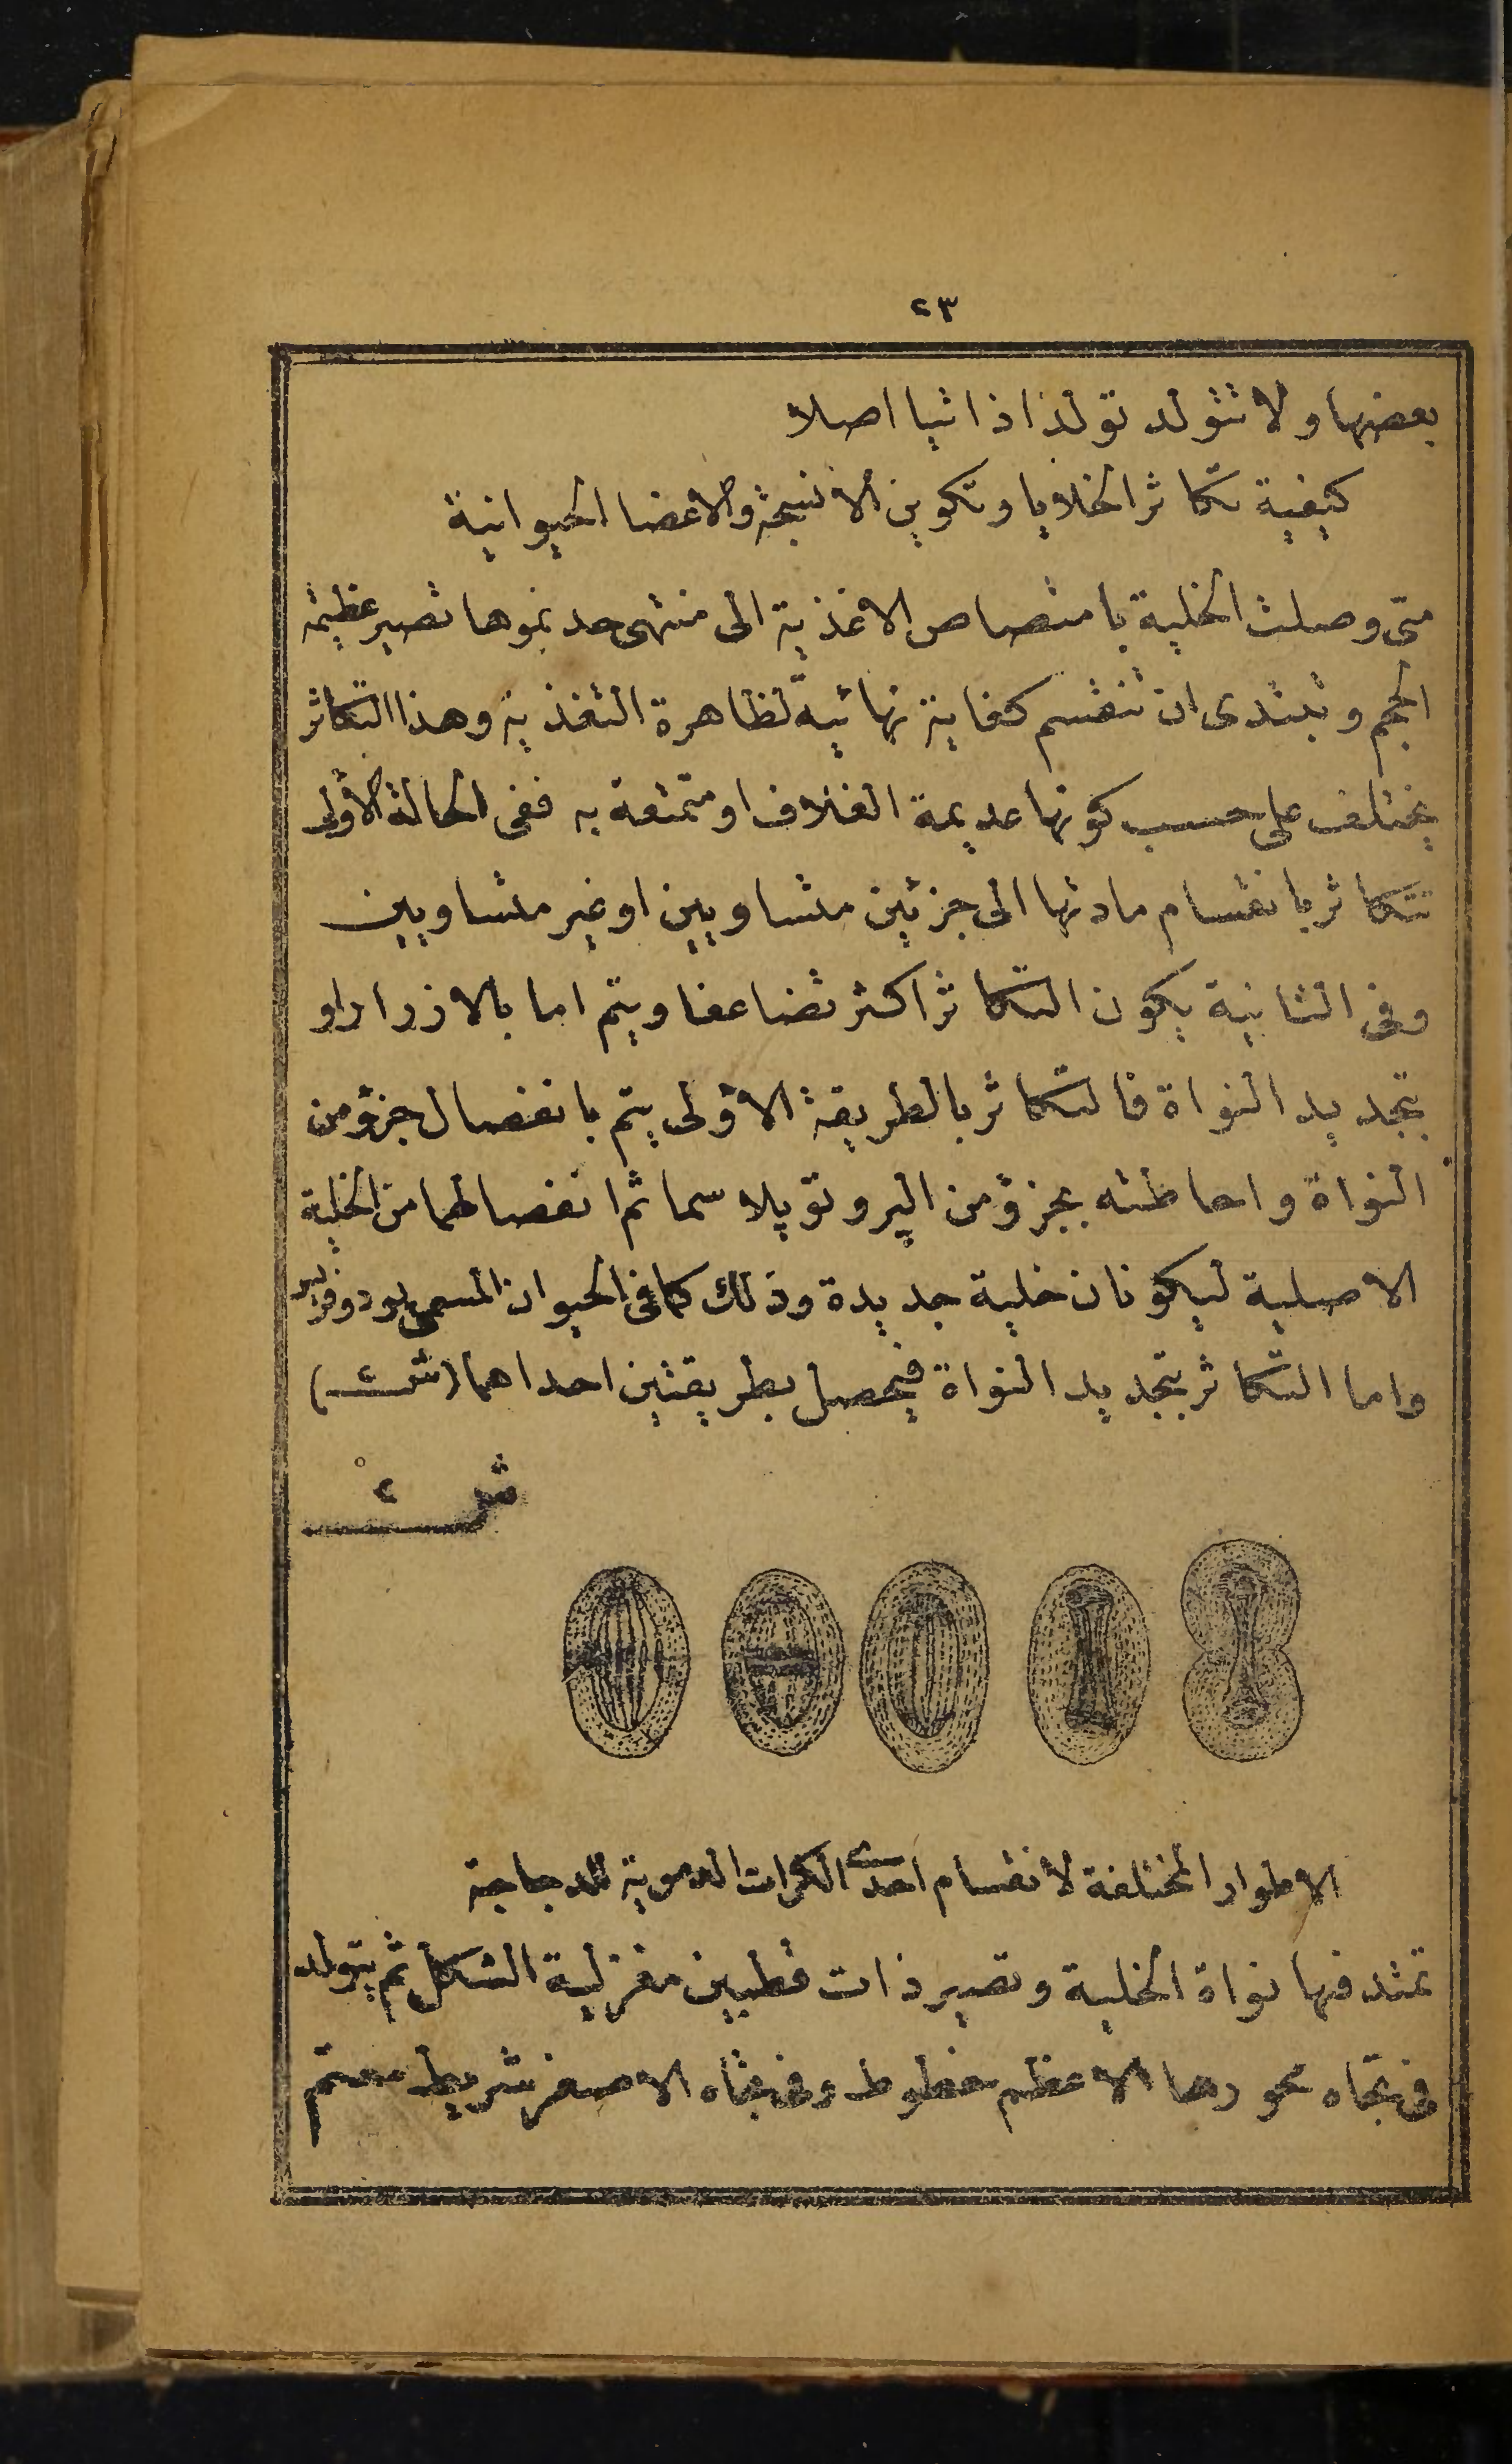 ٢٣
بعضها ولا تتولد تولدا ذاتيا اصلا
كيفية تكاثر الخلايا وتكوين الانسجة والاعضا الحيوانية
متى وصلت الخلية بامتصاص الاغذية الى منتهى حد نموها تصير عظيمة
الحجم وتبتدى ان تنقسم كغاية نهائية لظاهرة التغذية وهذا التكاثر
يختلف على حسب كونها عديمة الغلاف او متمتعة به ففى الحالة الأولى
تتكاثر بانقسام مادتها الى جزئين متساويين او غير متساويين
وفى الثانية يكون التكاثر اكثر تضاعفا ويتم اما بالازرار او
بتجديد النواة فالتكاثر بالطريقة الأولى يتم بانفصال جزؤ من
النواة واحاطته بجزؤ من الپروتوپلاسما ثم انفصالهما من الخلية
الاصلية ليكونان خلية جديدة وذلك كما فى الحيوان المسمى
واما التكاثر بتجديد النواة فيحصل بطريقتين احداهما (شـ ٢)
شـ ٢
الاطوار المختلفة لانقسام احدى الكرات الدموية للدجاجة
تمتد فيها نواة الخلية وتصير ذات قطبين مغزلية الشكل ثم يتولد
فى تجاه محورها الاعظم خطوط وفى تجاه الاصغر شريط معتم